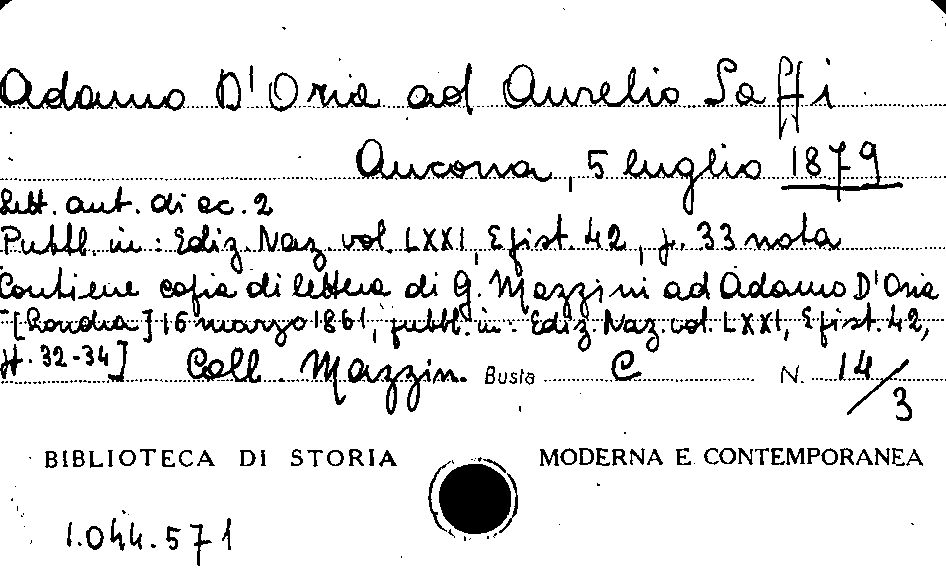 Adamo D'Oria ad Aurelio Saffi
Ancona, 5 luglio 1879
Lett. aut. di cc. 2
Pubbl. in: Ediz. Naz. vol. LXXI, Epist. 42, p. 33 nota
Contiene copia di lettera di G. Mazzini ad Adamo D'Oria
[Londra] 16 marzo 1861, pubbl. in: Ediz. Naz. vol. LXXI, Epist. 42,
pp. 32-34]
Coll. Mazzin. Busta C N. 14/3
BIBLIOTECA DI STORIA MODERNA E CONTEMPORANEA
1.044.571